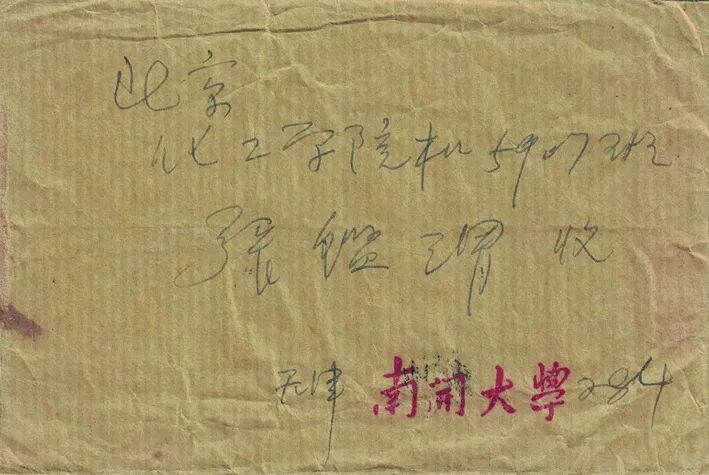 北京
化工学院机5907班
张鑑渭收
天津 南開大學 284